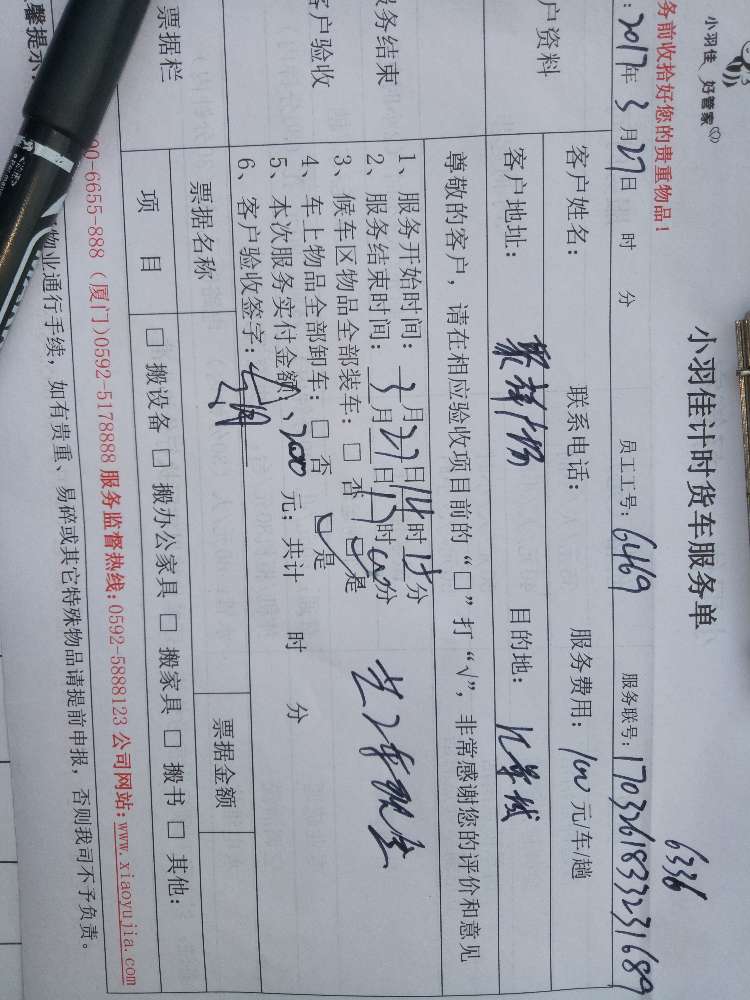 小羽佳 好管家
6336
小羽佳计时货车服务单
务前收拾好您的贵重物品!
: 2017年 3 月 27 日 时 分 员工工号: 6469 服务联号: 1703261833231689
户资料
客户姓名: 联系电话: 服务费用: 100 元/车/趟
客户地址: 目的地:
尊敬的客户，请在相应验收项目前的“□”打“√”，非常感谢您的评价和意见
服务结束
客户验收
1、服务开始时间: 3月27日14时15分
2、服务结束时间: 3月27日17时00分
3、候车区物品全部装车: □ 否 ☑ 是
4、车上物品全部卸车: □ 否 ☑ 是
5、本次服务实付金额 200 元; 共计 时 分
6、客户验收签字:
票据栏
票据名称 票据金额
项 目 □ 搬设备 □ 搬办公家具 □ 搬家具 □ 搬书 □ 其他:
00-6655-888 (厦门)0592-5178888 服务监督热线:0592-5888123 公司网站:www.xiaoyujia.com
馨提示
物业通行手续，如有贵重、易碎或其它特殊物品请提前申报，否则我司不予负责。